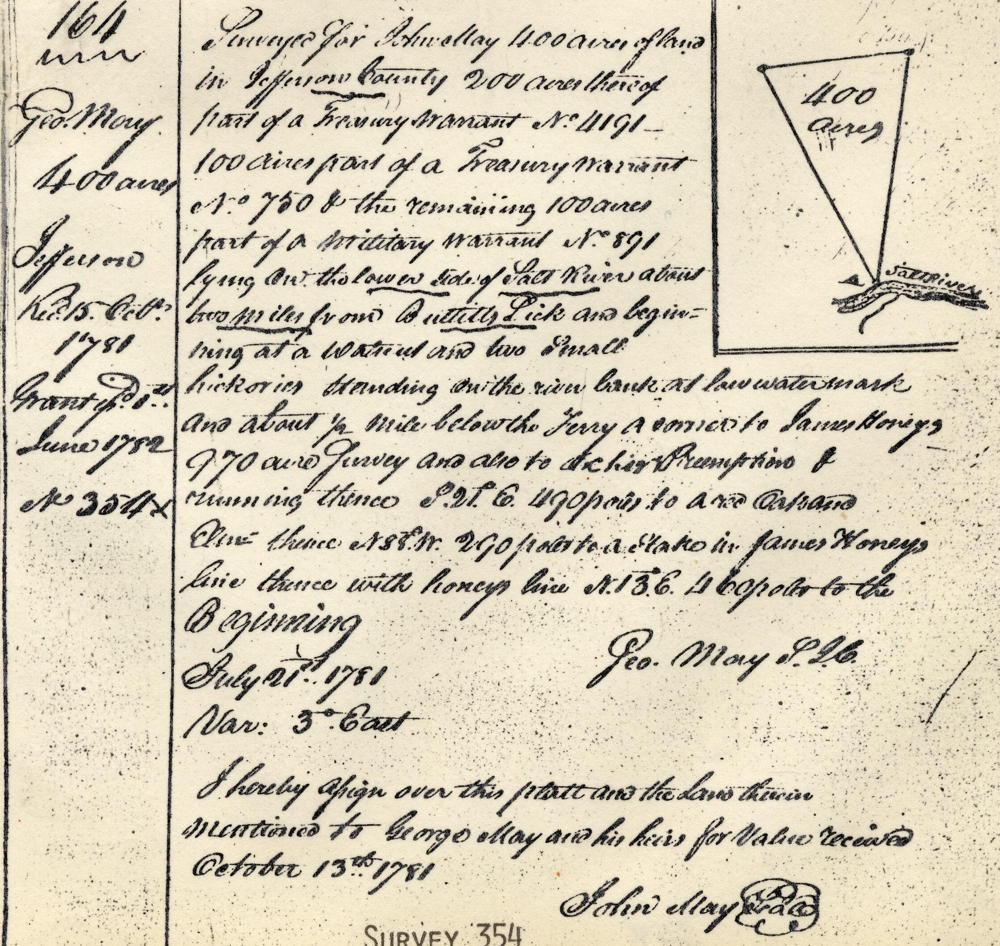 164
Geo. May
400 acres
Jefferson
Rec.d 15. Octr.
1781
Grant isd. 1st
June 1782
No 354 x
Surveyed for John May 400 acres of land
in Jefferson County 200 acres thereof
part of a Treasury Warrant No. 4191 –
100 acres part of a Treasury Warrant
No. 750 & the remaining 100 acres
part of a Military Warrant No. 891
lying on the lower side of Salt River about
two miles from Bullitts Lick and begin=
ning at a Walnut and two Small
hickories standing on the river bank at low water mark
and about 1/2 mile below the Ferry a corner to James Honeys
970 acre Survey and also to Preemption &
running thence S. 21. E. 490 poles to a red Oak and
Elm thence N 88. W. 290 poles to a Stake in James Honeys
line thence with honeys line N. 13. E. 460 poles to the
Beginning
Geo. May S. J. C.
July 21st. 1781
Var: 3°. East
I hereby assign over this platt and the Land therein
mentioned to George May and his heirs for Value received
October 13th 1781
John May Seal
400
acres
A
Salt River
SURVEY 354